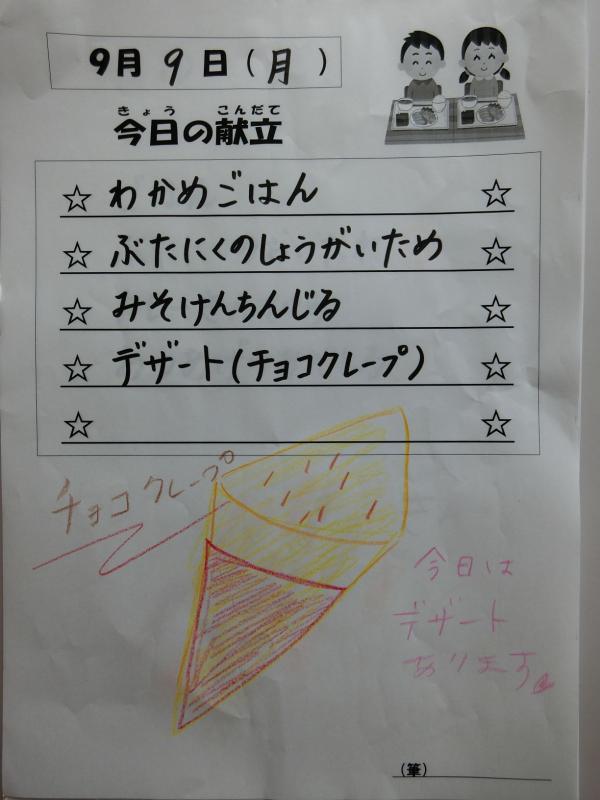 9月9日(月)
きょう こんだて
今日の献立
☆ わかめごはん ☆
☆ ぶたにくのしょうがいため ☆
☆ みそけんちんじる ☆
☆ デザート(チョコクレープ) ☆
☆ ☆
チョコクレープ
今日は
デザート
あります。
(筆)